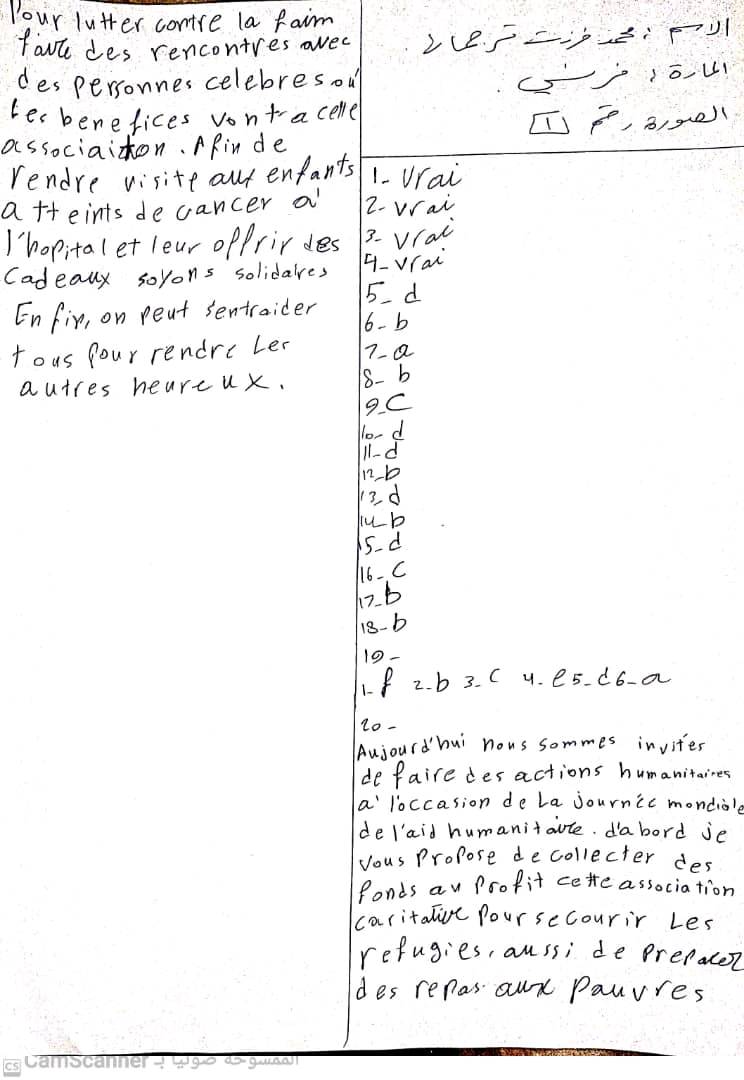 الاسم : محمد عزت ترجمان
المادة : فرنسي .
الصورة رقم 1
1- vrai
2- vrai
3- vrai
4- vrai
5- d
6- b
7- a
8- b
9- C
10- d
11- d
12- b
13- d
14- b
15- d
16- C
17- b
18- b
19-
1- f 2-b 3- C 4- e 5- d 6- a
20-
Aujourd'hui nous sommes invités
de faire des actions humanitaires
a' l'occasion de La journée mondiale
de l'aid humanitaire. d'abord je
vous Propose de collecter des
fonds au Profit cette association
caritative Pour secourir Les
refugies, aussi de preparer
des repas aux Pauvres
Pour lutter contre la faim
faire des rencontres avec
des personnes celebres où
Les benefices vont a cette
association . Afin de
rendre visite aux enfants
atteints de cancer a'
l'hopital et leur offrir des
Cadeaux soyons solidaires
Enfin, on peut s'entraider
tous Pour rendre Les
autres heureux.
CS CamScanner الممسوحة ضوئيا بـ